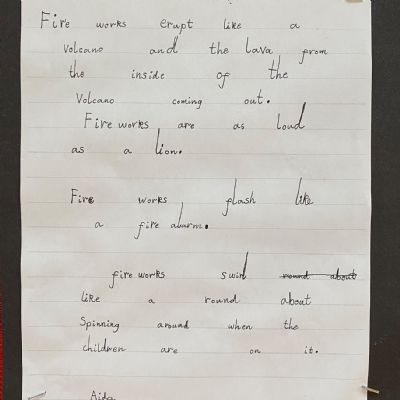 Fire works erupt like a
Volcano and the lava from
the inside of the
Volcano coming out.
Fire works are as loud
as a lion.
Fire works flash like
a fire alarm.
fire works swirl round about
like a round about
Spinning around when the
children are on it.
Aida